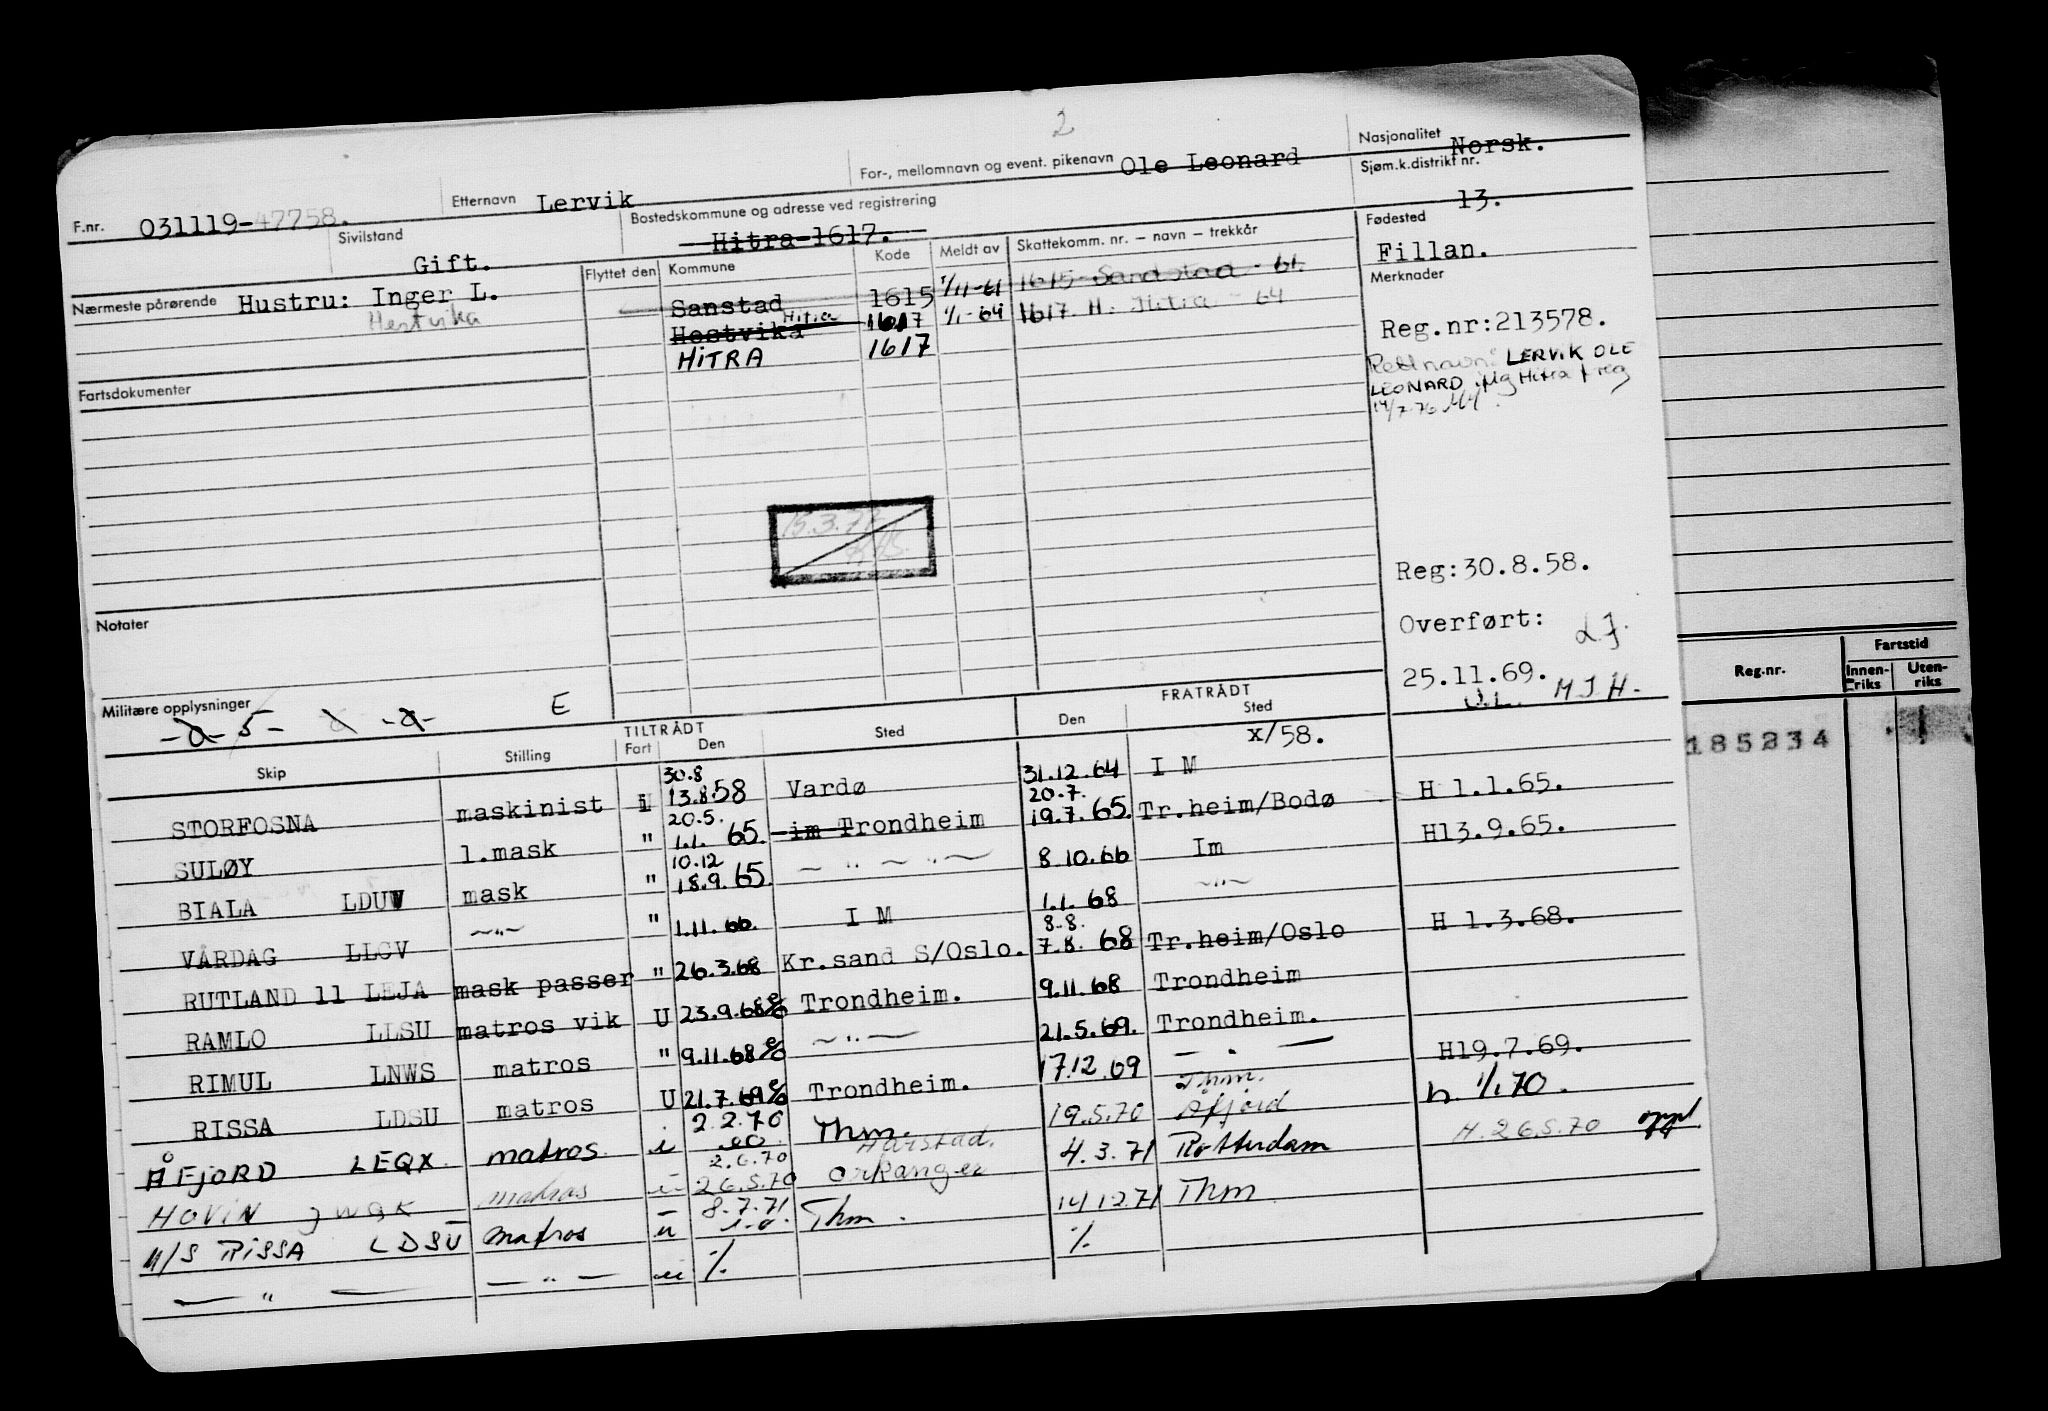 2
F.nr. 031119-47758. Etternavn Lervik For-, mellomnavn og event. pikenavn Ole Leonard Nasjonalitet Norsk.
Sivilstand Gift. Bostedskommune og adresse ved registrering Hitra-1617. Sjøm.k.distrikt nr. 13.
Nærmeste pårørende Hustru: Inger L. Flyttet den Kommune Kode Meldt av Skattekomm. nr. – navn – trekkår Fødested Fillan.
Hestvika Sanstad 1615 1/11-61 1615-Sandstad - 61.
Hestvika Hitra 1617 1/1-64 1617 H. Hitra - 64
HITRA 1617
Merknader
Reg.nr:213578.
Rett navn: LERVIK OLE
LEONARD
Fartsdokumenter
15.3.72
Reg:30.8.58.
Notater
Overført:
25.11.69.
MJH.
Militære opplysninger
E
TILTRÅDT FRATRÅDT
Skip Stilling Fart Den Sted Den Sted
x/58.
STORFOSNA maskinist i 30.8 13.8.58 Vardø 31.12.64 I M
SULØY 1.mask " 20.5. 1.1. 65. im Trondheim 20.7. 19.7.65. Tr.heim/Bodø H 1.1.65.
BIALA LDUV mask " 10.12 18.9.65. — " — " — 8.10.66 Im H13.9.65.
VÅRDAG LLGV —"— " 1.11.66. I M 1.1.68 —"—
RUTLAND 11 LEJA mask passer " 26.3.68 Kr.sand S/Oslo. 8.8. 7.8. 68 Tr.heim/Oslo H 1.3.68.
RAMLO LLSU matros vik U 23.9.68 Trondheim. 9.11.68 Trondheim
RIMUL LNWS matros " 9.11.68 — " — 21.5.69. Trondheim.
RISSA LDSU matros U 21.7.69 Trondheim. 17.12.69 — " — H19.7.69.
ÅFJORD LEQX matros i 2.2.70 Thm. 19.5.70 Thm. Åfjord h. 1/1.70.
HOVIN JWQK matros 2.6.70 26.5.70 Harstad. Orkanger 4.3.71 Rotterdam H. 26.5.70
M/S RISSA LDSU matros u 8.7.71 Thm. 14.12.71 Thm
— " — — " — ./. ./.
Reg.nr. Fartstid
Innen-riks Uten-riks
185234